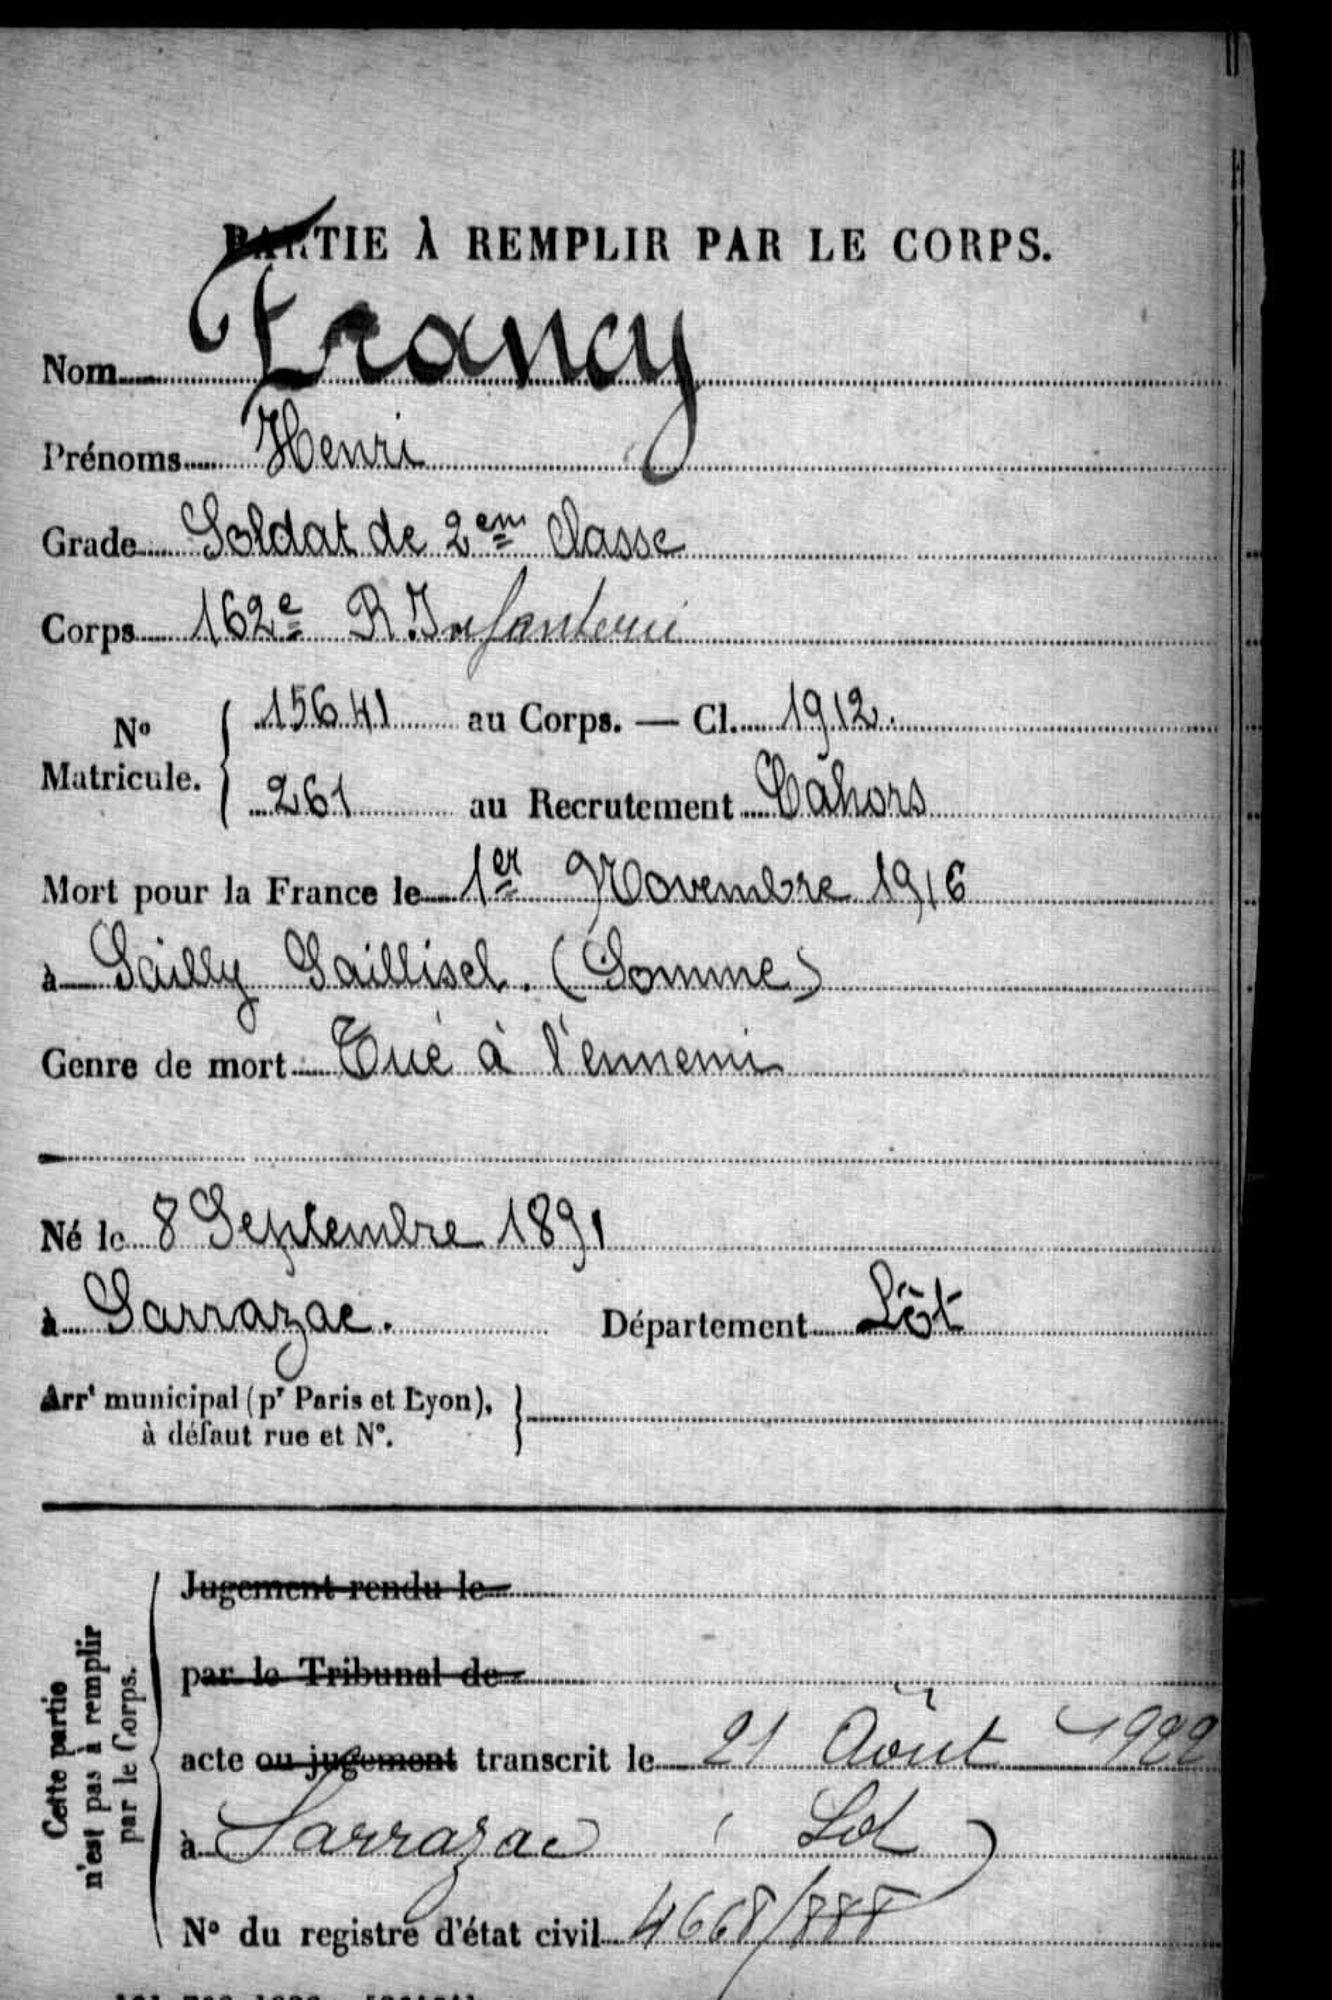 PARTIE À REMPLIR PAR LE CORPS.
Nom Francy
Prénoms Henri
Grade Soldat de 2em classe
Corps 162e R. Infanterie
No Matricule. { 15641 au Corps. — Cl. 1912.
261 au Recrutement Cahors
Mort pour la France le 1er Novembre 1916
à Sailly Saillisel. (Somme)
Genre de mort Tué à l'ennemi
Né le 8 Septembre 1891
à Sarrazac. Département Lôt
Arrt municipal (pr Paris et Lyon), }
à défaut rue et No.
Cette partie
n'est pas à remplir
par le Corps.
Jugement rendu le
par le Tribunal de
acte ou jugement transcrit le 21 Août 1922
à Sarrazac (Lot)
No du registre d'état civil 4668/888